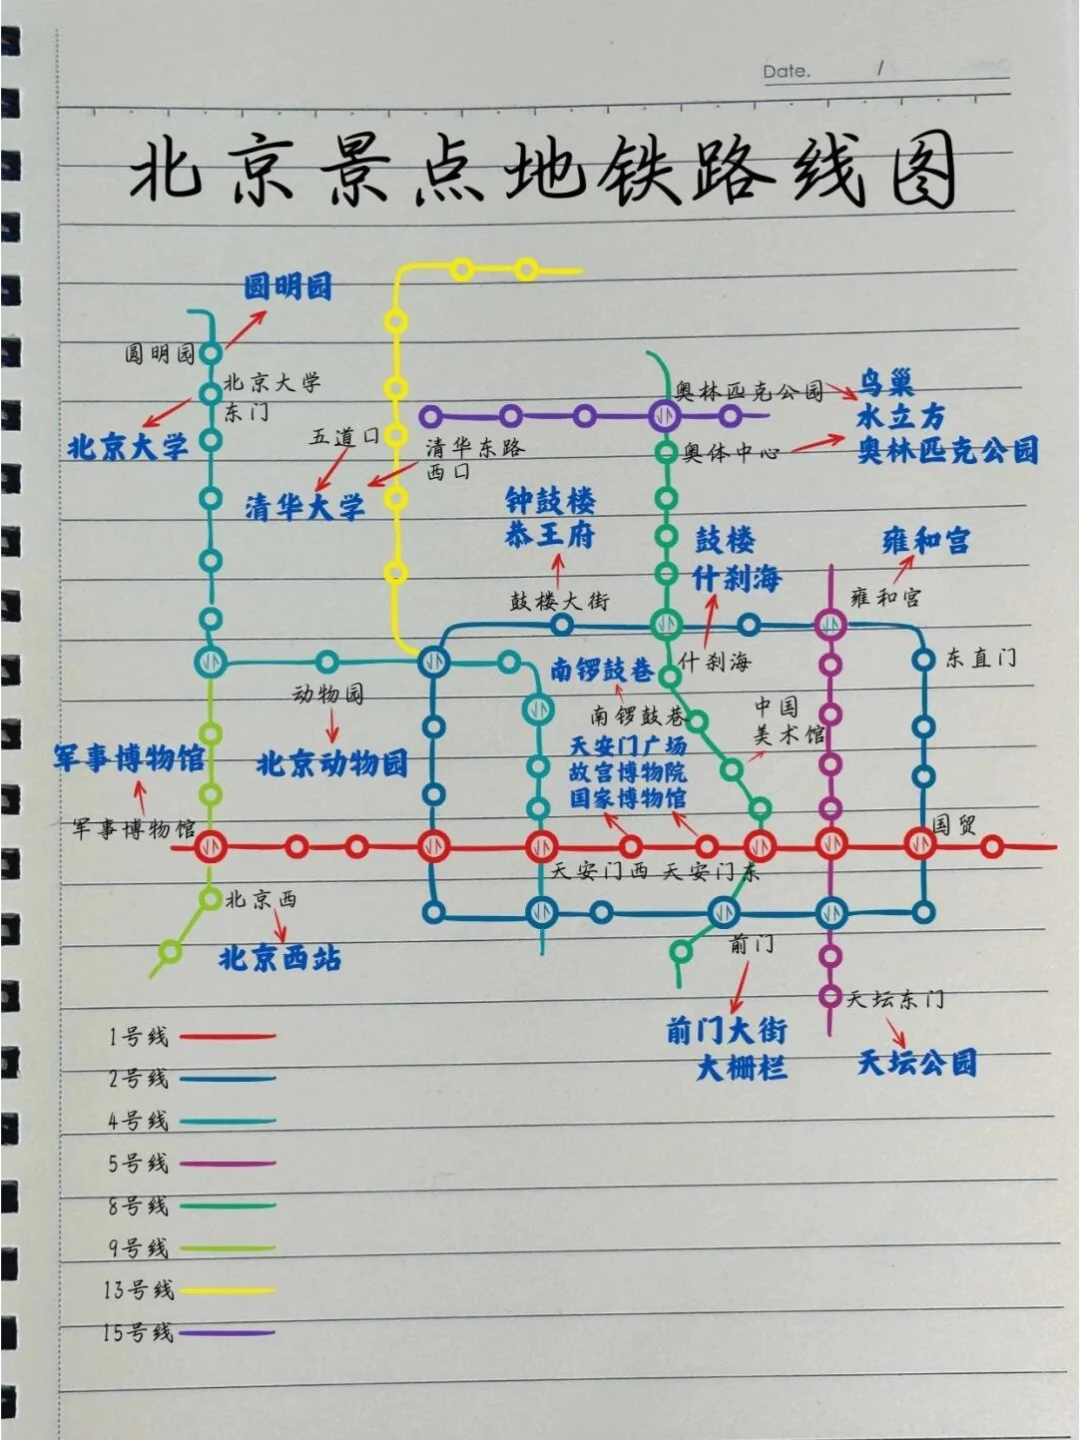 Date. /
北京景点地铁路线图
圆明园
圆明园
北京大学
东门
北京大学
五道口
清华东路
西口
清华大学
奥林匹克公园
鸟巢
水立方
奥体中心
奥林匹克公园
钟鼓楼
恭王府
鼓楼大街
鼓楼
什刹海
什刹海
雍和宫
雍和宫
东直门
动物园
北京动物园
南锣鼓巷
南锣鼓巷
中国
美术馆
天安门广场
故宫博物院
国家博物馆
军事博物馆
军事博物馆
国贸
天安门西
天安门东
北京西
北京西站
前门
前门大街
大栅栏
天坛东门
天坛公园
1号线
2号线
4号线
5号线
8号线
9号线
13号线
15号线